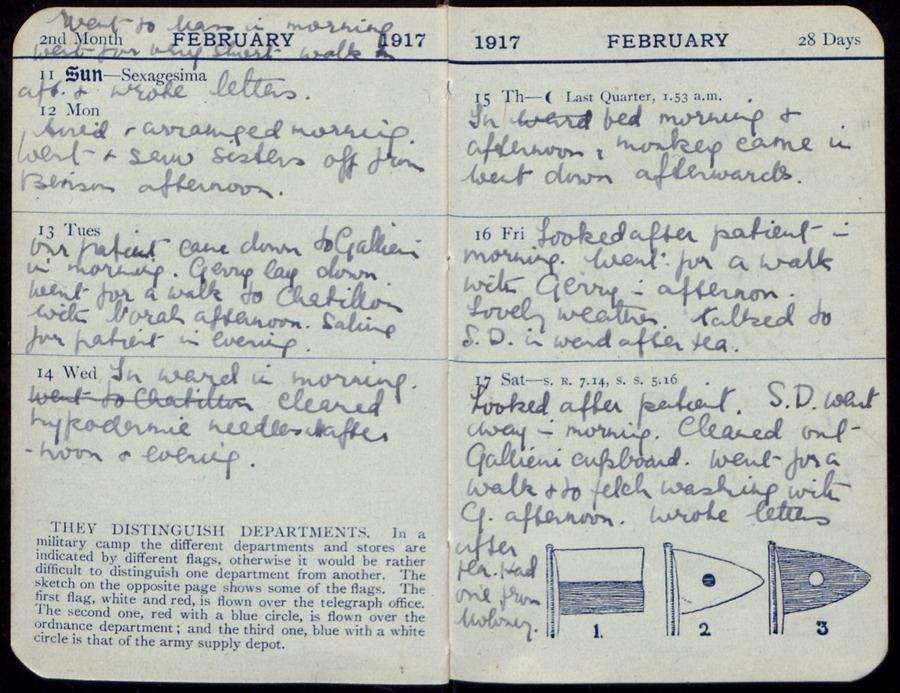 Went to Mass in morning
2nd Month FEBRUARY 1917
went for very short walk in
11 Sun—Sexagesima
aft. & wrote letters.
12 Mon
& arranged morning
went & saw sisters off from
afternoon.
13 Tues
our patient came down to Gallieni
in morning. Gerry lay down
went for a walk to Chatillon
with Norah afternoon. Saline
for patient in evening.
14 Wed In ward in morning.
went to Chatillon cleaned
hypodermic needles after
-noon & evening.
THEY DISTINGUISH DEPARTMENTS. In a
military camp the different departments and stores are
indicated by different flags, otherwise it would be rather
difficult to distinguish one department from another. The
sketch on the opposite page shows some of the flags. The
first flag, white and red, is flown over the telegraph office.
The second one, red with a blue circle, is flown over the
ordnance department; and the third one, blue with a white
circle is that of the army supply depot.
1917 FEBRUARY 28 Days
15 Th—☾ Last Quarter, 1.53 a.m.
In ward bed morning &
afternoon, monkey came in
went down afterwards.
16 Fri Looked after patient in
morning. Went for a walk
with Gerry in afternoon.
Lovely weather. talked to
S.D. in ward after tea.
17 Sat—S. R. 7.14, S. S. 5.16
Looked after patient. S.D. went
away in morning. Cleaned out
Gallieni cupboard. Went for a
walk & to fetch washing with
G. afternoon. Wrote letters
after
tea. Had
one from
Moloney.
1. 2 3